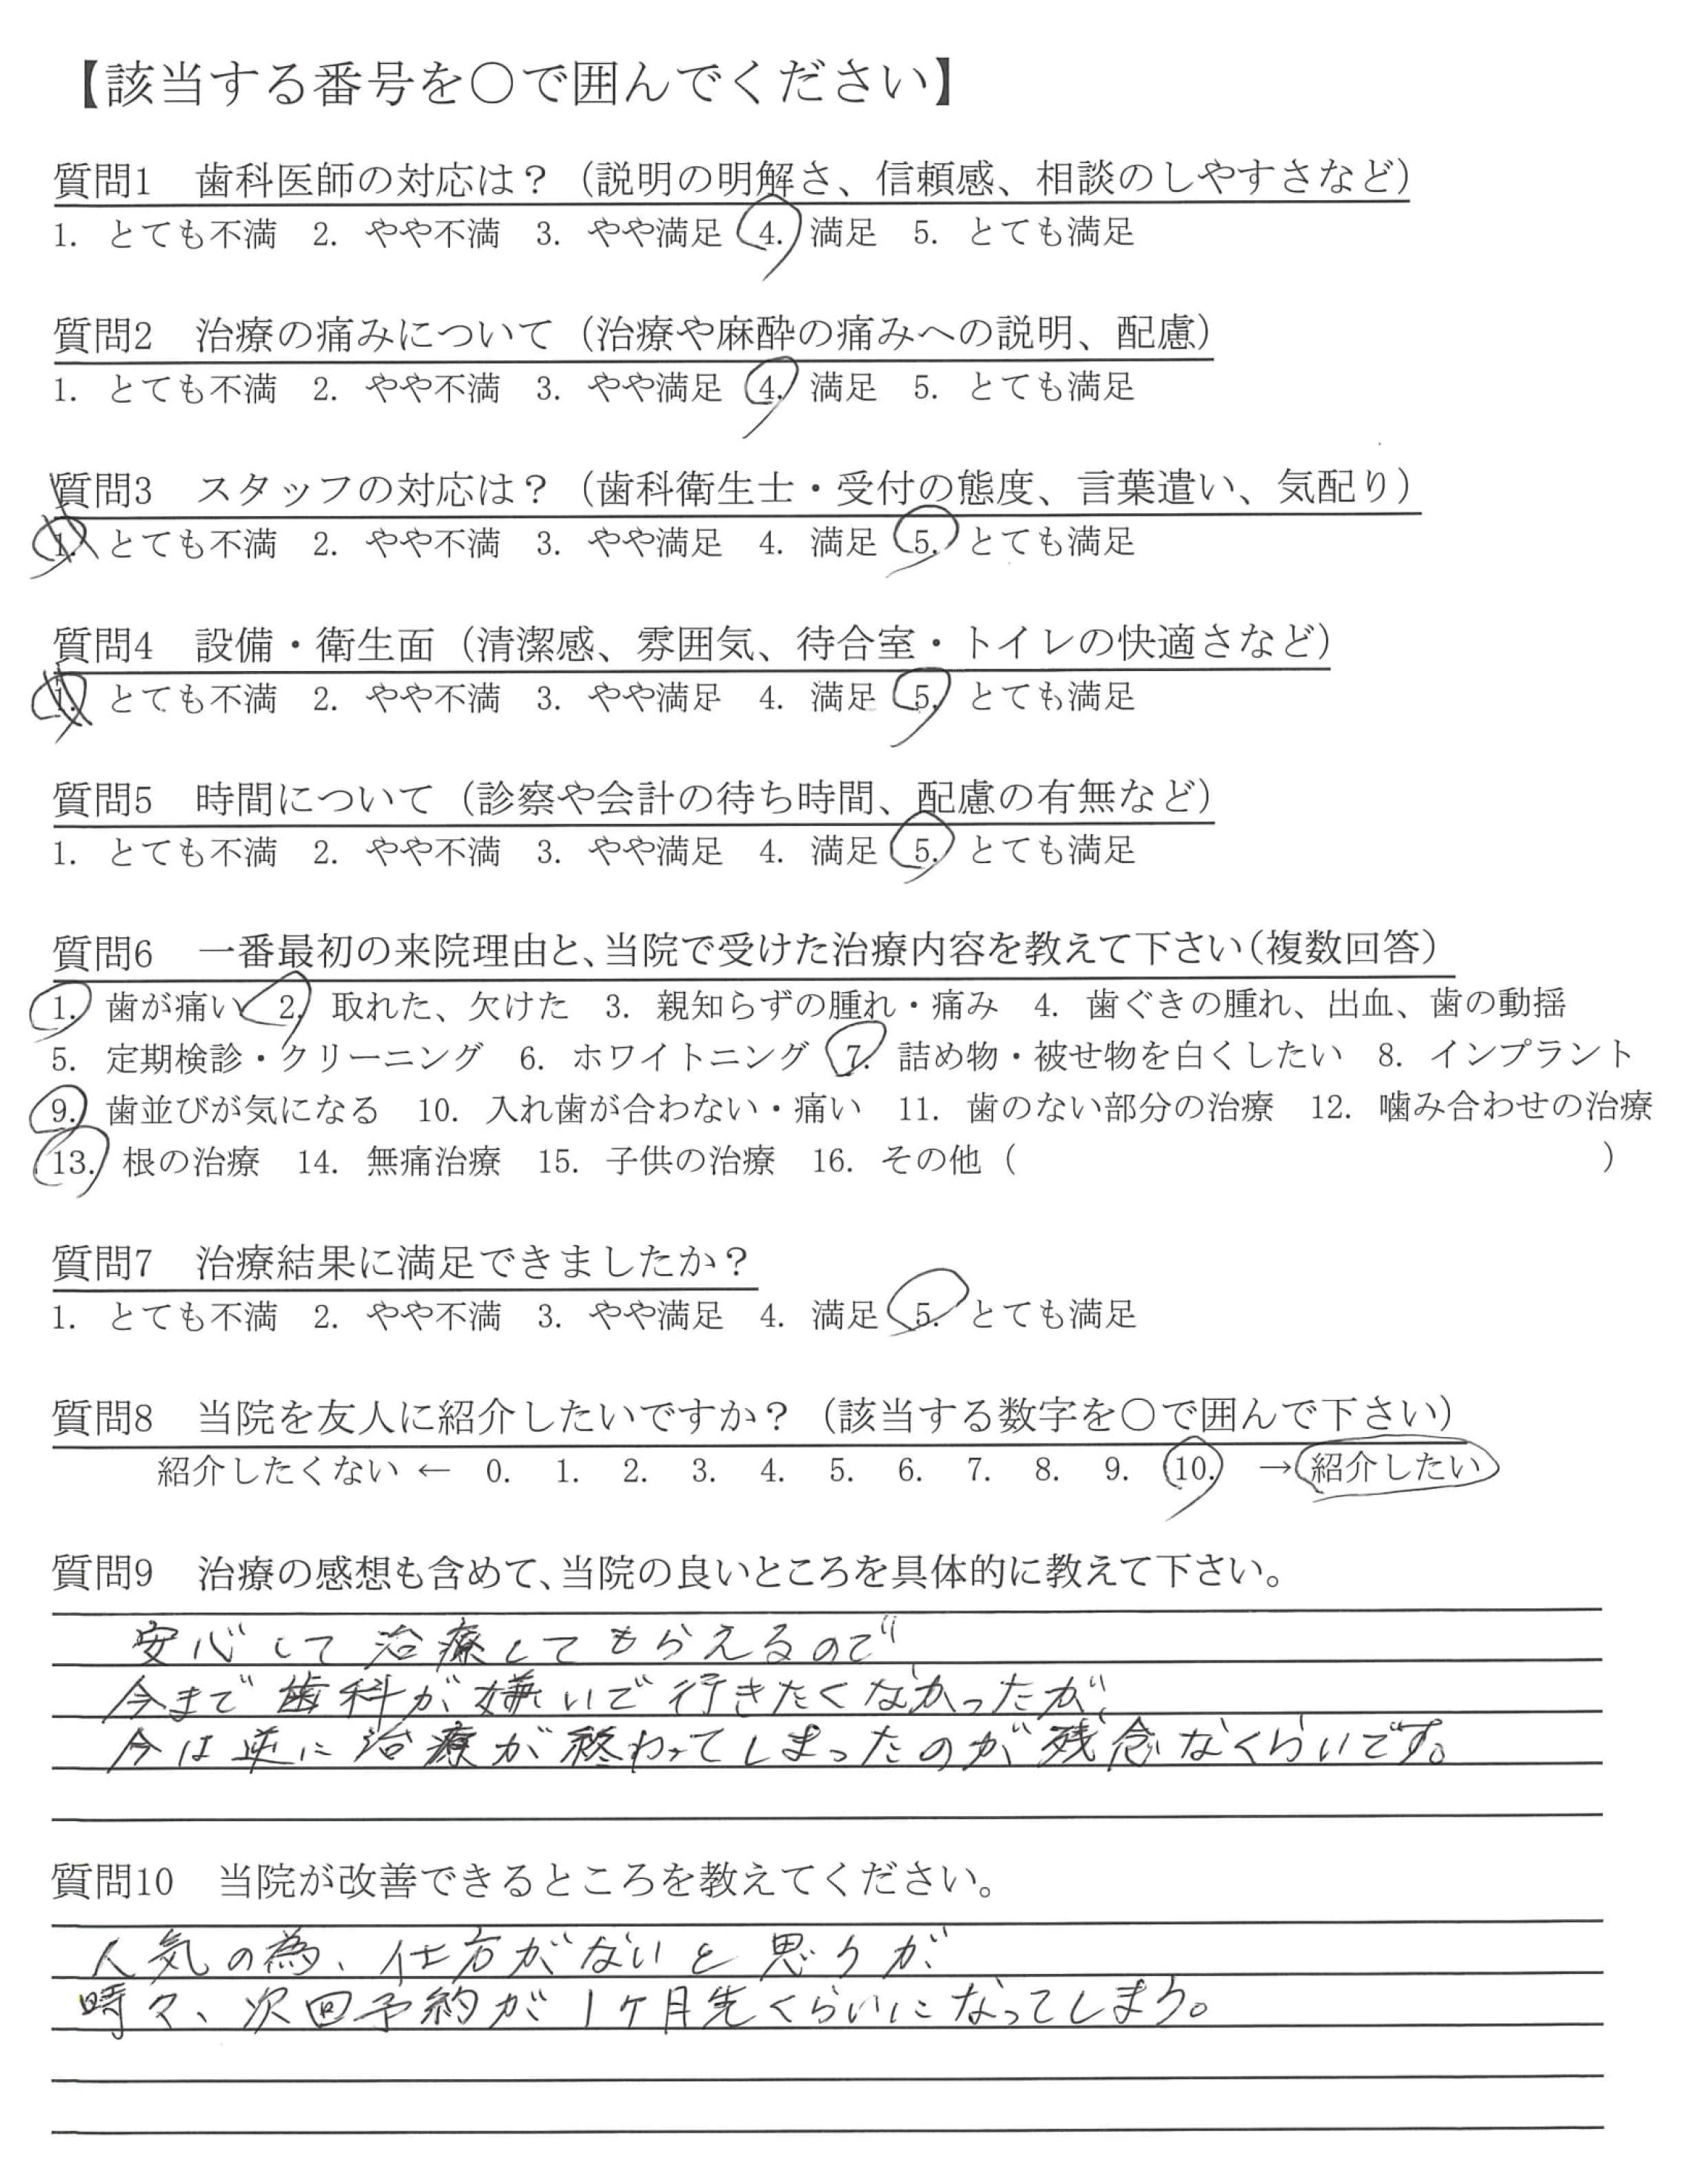 【該当する番号を○で囲んでください】
質問1　歯科医師の対応は？（説明の明解さ、信頼感、相談のしやすさなど）
1. とても不満　2. やや不満　3. やや満足　4. 満足　5. とても満足
質問2　治療の痛みについて（治療や麻酔の痛みへの説明、配慮）
1. とても不満　2. やや不満　3. やや満足　4. 満足　5. とても満足
質問3　スタッフの対応は？（歯科衛生士・受付の態度、言葉遣い、気配り）
1. とても不満　2. やや不満　3. やや満足　4. 満足　5. とても満足
質問4　設備・衛生面（清潔感、雰囲気、待合室・トイレの快適さなど）
1. とても不満　2. やや不満　3. やや満足　4. 満足　5. とても満足
質問5　時間について（診察や会計の待ち時間、配慮の有無など）
1. とても不満　2. やや不満　3. やや満足　4. 満足　5. とても満足
質問6　一番最初の来院理由と、当院で受けた治療内容を教えて下さい（複数回答）
1. 歯が痛い　2. 取れた、欠けた　3. 親知らずの腫れ・痛み　4. 歯ぐきの腫れ、出血、歯の動揺
5. 定期検診・クリーニング　6. ホワイトニング　7. 詰め物・被せ物を白くしたい　8. インプラント
9. 歯並びが気になる　10. 入れ歯が合わない・痛い　11. 歯のない部分の治療　12. 噛み合わせの治療
13. 根の治療　14. 無痛治療　15. 子供の治療　16. その他（　　　　　　　　　　）
質問7　治療結果に満足できましたか？
1. とても不満　2. やや不満　3. やや満足　4. 満足　5. とても満足
質問8　当院を友人に紹介したいですか？（該当する数字を○で囲んで下さい）
紹介したくない ←　0.　1.　2.　3.　4.　5.　6.　7.　8.　9.　10.　→紹介したい
質問9　治療の感想も含めて、当院の良いところを具体的に教えて下さい。
安心して治療してもらえるので
今まで歯科が嫌いで行きたくなかったが、
今は逆に治療が終わってしまったのが残念なくらいです。
質問10　当院が改善できるところを教えてください。
人気の為、仕方がないと思うが、
時々、次回予約が1ケ月先くらいになってしまう。